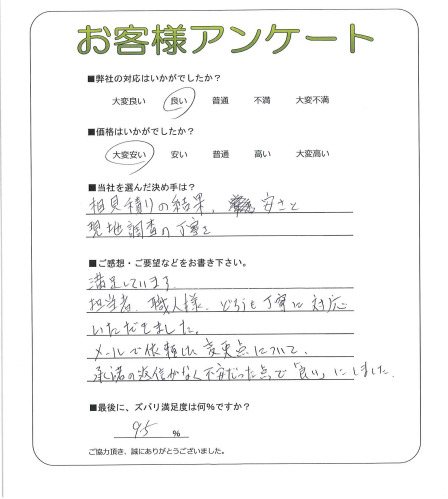 お客様アンケート
■弊社の対応はいかがでしたか？
大変良い 良い 普通 不満 大変不満
■価格はいかがでしたか？
大変安い 安い 普通 高い 大変高い
■当社を選んだ決め手は？
相見積りの結果、安さと
現地調査の丁寧さ
■ご感想・ご要望などをお書き下さい。
満足しています。
担当者、職人様、どちらも丁寧に対応
いただきました。
メールで依頼した変更点について、
承諾の返信がなく不安だった点で「良い」にしました。
■最後に、ズバリ満足度は何%ですか？
95 %
ご協力頂き、誠にありがとうございました。